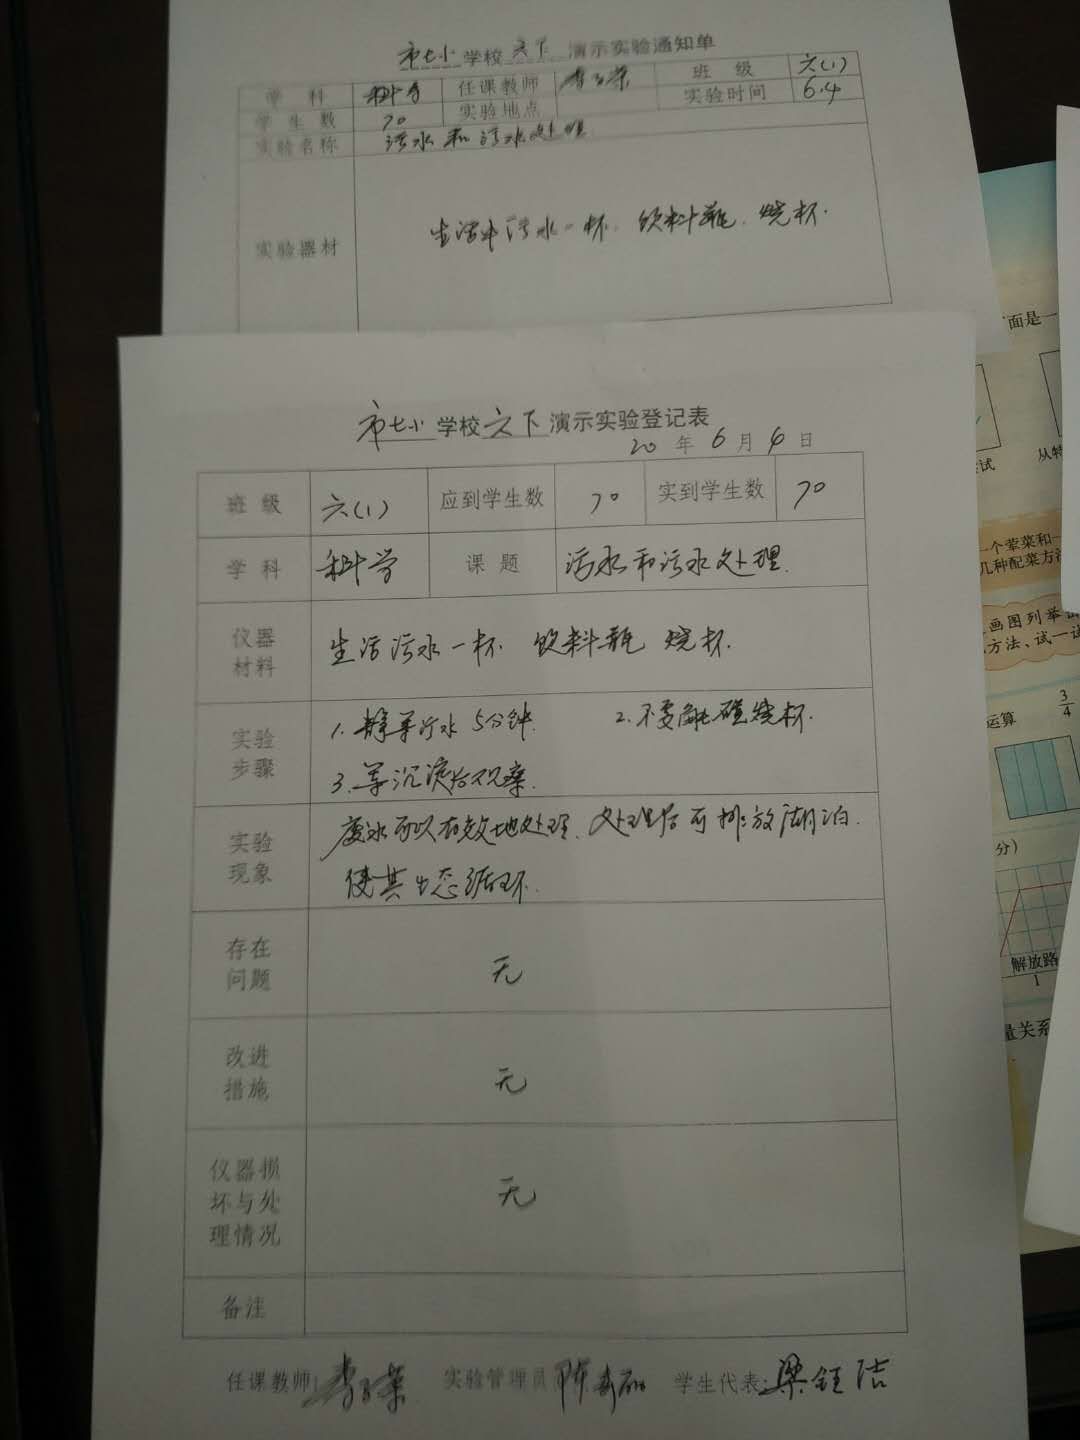 市七小学校六下演示实验通知单
学科 科学 任课教师 班级 六(1)
学生数 70 实验地点 实验时间 6.4
实验名称 污水和污水处理
实验器材 生活中污水一杯. 饮料瓶. 烧杯.
市七小学校六下演示实验登记表
20年6月4日
班级 六(1) 应到学生数 70 实到学生数 70
学科 科学 课题 污水和污水处理.
仪器
材料
生活污水一杯 饮料瓶 烧杯.
实验
步骤
1. 静等污水5分钟. 2. 不要触碰烧杯.
3. 等沉淀后观察.
实验
现象
废水可以有效地处理. 处理后可排放湖泊.
使其生态循环.
存在
问题
无
改进
措施
无
仪器损
坏与处
理情况
无
备注
任课教师: 实验管理员 陈 学生代表: 梁钰洁
面是一
试
从特
一个荤菜和一
几种配菜方法
画图列举
方法、试一试
运算
3
4
分)
解放路
1
量关系